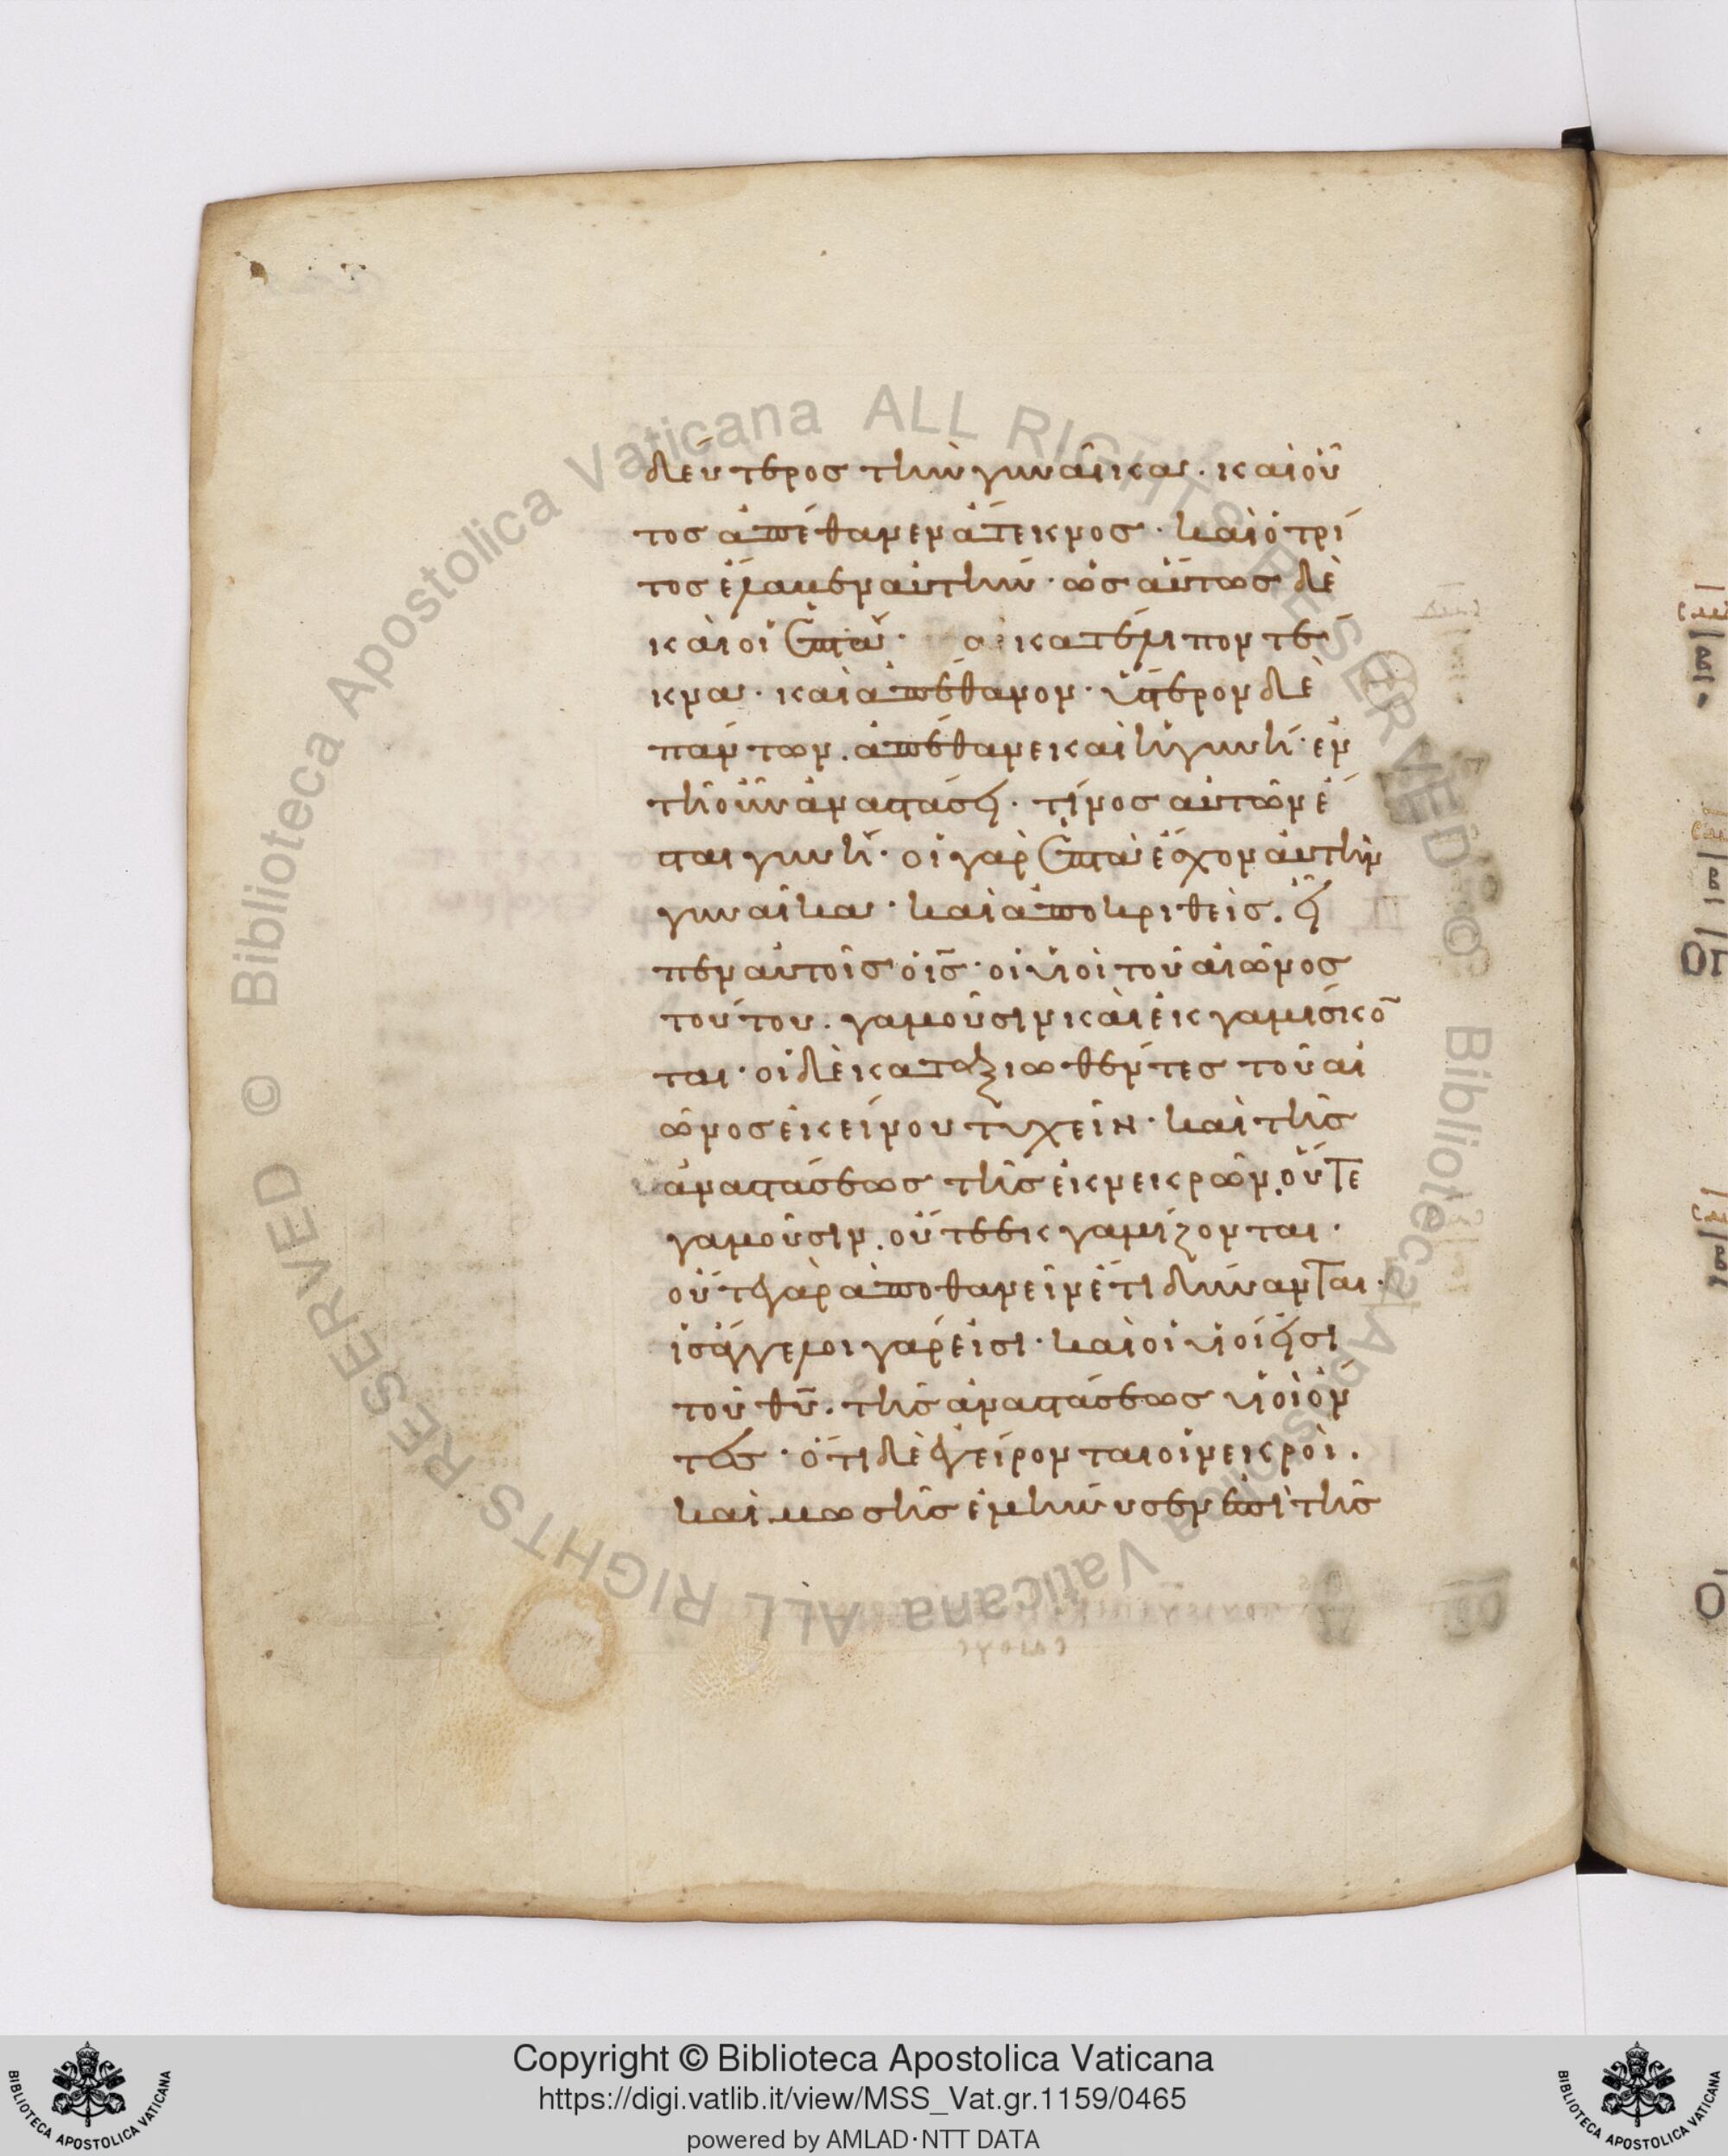 δεύτερος τὴν γυναῖκα· καὶ οὗ
τος ἀπέθανεν ἄτεκνος· καὶ ὁ τρί
τος ἔλαβεν αὐτήν· ὡσαύτως δὲ
καὶ οἱ ἑπτά· ο κατέλιπον τέ
κνα· καὶ ἀπέθανον· ὕστερον δὲ
πάντων. ἀπέθανε καὶ ἡ γυνή· ἐν
τῇ οὖν ἀναστάσει· τίνος αὐτῶν ἔ
σται γυνή· οἱ γὰρ ἑπτὰ ἔσχον αὐτὴν
γυναῖκα· καὶ ἀποκριθεὶς. εἶ
πεν αὐτοῖς ὁ ις̅· οἱ υἱοὶ τοῦ αἰῶνος
τούτου. γαμοῦσιν καὶ ἐκγαμίσκο̅
ται· οἱ δὲ καταξιωθέντες τοῦ αἰ
ῶνος ἐκείνου τυχεῖν· καὶ τῆς
ἀναστάσεως τῆς ἐκ νεκρῶν. οὔτε
γαμοῦσιν. οὔτε ἐκγαμίζονται·
οὔτε γὰρ ἀποθανεῖν ἔτι δύνανται·
ἰσάγγελοι γάρ εἰσι· καὶ οἱ υἱοί εἰσι
τοῦ θυ̅. τῆς ἀναστάσεως υἱοὶ ὄν
τες· ὅτι δὲ ἐγείρονται οἱ νεκροὶ.
καὶ μωσῆς ἐμήνυσεν ἐπὶ τῆς
Copyright © Biblioteca Apostolica Vaticana
https://digi.vatlib.it/view/MSS_Vat.gr.1159/0465
powered by AMLAD·NTT DATA
BIBLIOTECA APOSTOLICA VATICANA
BIBLIOTECA APOSTOLICA VATICANA
© Biblioteca Apostolica Vaticana ALL RIGHTS RESERVED
© Biblioteca Apostolica Vaticana ALL RIGHTS RESERVED